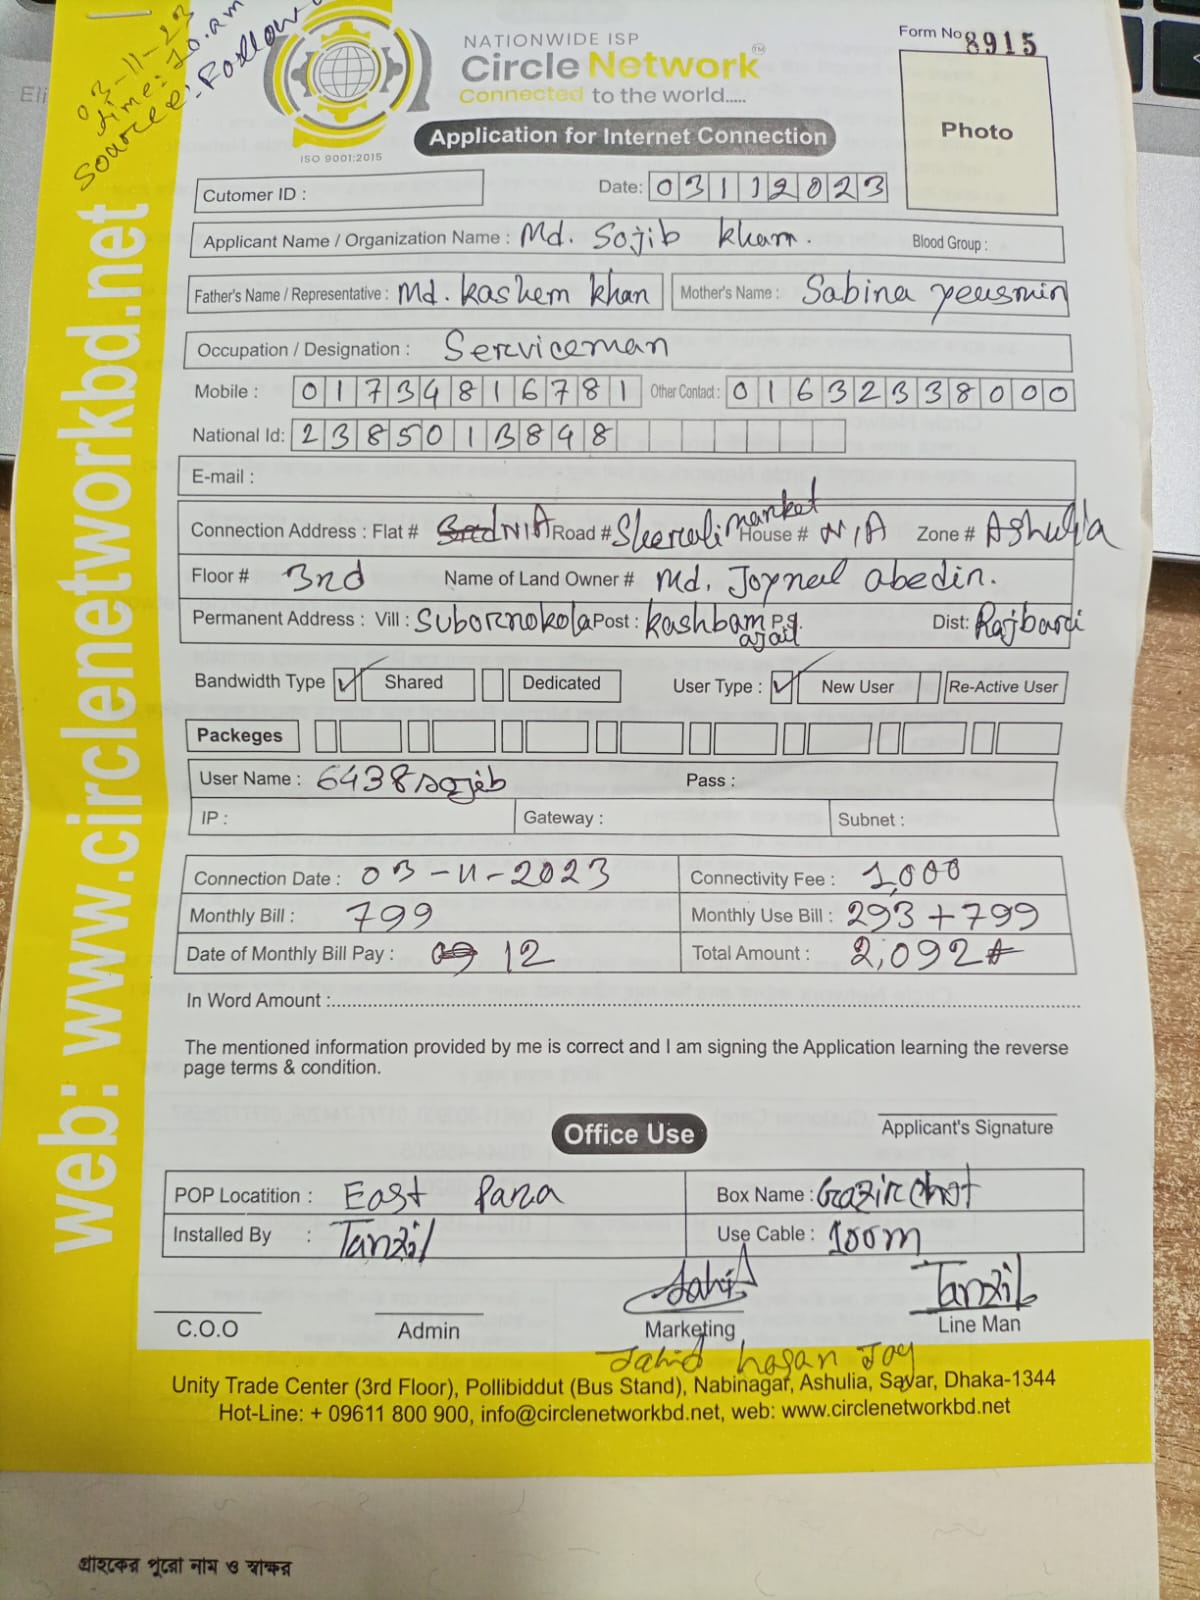 03-11-23
time: 10.am
Source: Follow
NATIONWIDE ISP
Circle Network
TM
Connected to the world.....
ISO 9001:2015
Form No 8915
Photo
Application for Internet Connection
Cutomer ID :
Date: 03112023
Applicant Name / Organization Name : Md. Sojib kham. Blood Group :
Father's Name / Representative : Md. kashem khan Mother's Name : Sabina yeusmin
Occupation / Designation : Serviceman
Mobile : 01734816781 Other Contact : 01632338000
National Id: 2385013848
E-mail :
Connection Address : Flat # N/A Road # market House # N/A Zone # Ashulia
Floor # 3nd Name of Land Owner # Md. Joynal abedin.
Permanent Address : Vill : Subornokola Post : kashbam P.S. Dist: Rajbari
Bandwidth Type ✓ Shared Dedicated User Type : ✓ New User Re-Active User
Packeges
User Name : 6438sojib Pass :
IP : Gateway : Subnet :
Connection Date : 03-11-2023 Connectivity Fee : 1,000
Monthly Bill : 799 Monthly Use Bill : 293+799
Date of Monthly Bill Pay : 12 Total Amount : 2,092
In Word Amount :
The mentioned information provided by me is correct and I am signing the Application learning the reverse
page terms & condition.
Applicant's Signature
Office Use
POP Locatition : East Para Box Name : Gazirchot
Installed By : Tanzil Use Cable : 100m
Jahid Tanzil
C.O.O Admin Marketing Line Man
Jahid hasan Joy
Unity Trade Center (3rd Floor), Pollibiddut (Bus Stand), Nabinagar, Ashulia, Savar, Dhaka-1344
Hot-Line: + 09611 800 900, info@circlenetworkbd.net, web: www.circlenetworkbd.net
web: www.circlenetworkbd.net
গ্রাহকের পুরো নাম ও স্বাক্ষর